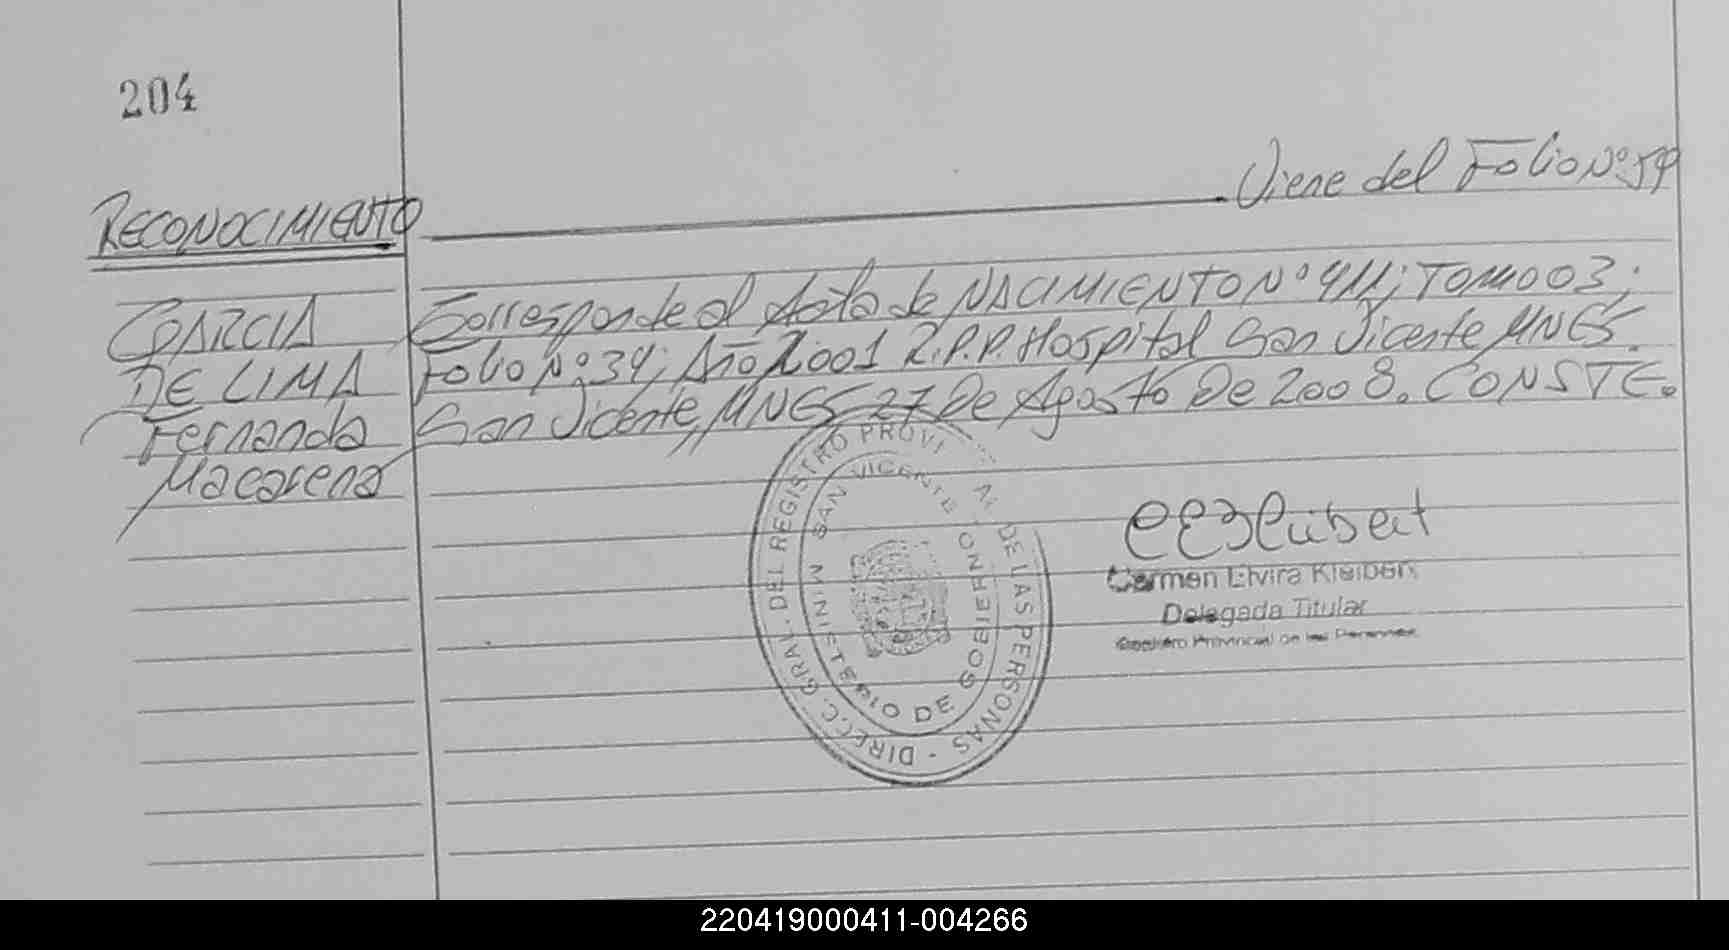 204
Viene del Folio Nº 54
RECONOCIMIENTO
GARCIA
DE LIMA
Fernanda
Macarena
Corresponde al Acta de NACIMIENTO Nº 411; TOMO 03;
Folio Nº 34; Año 2.001 R.P.P. Hospital San Vicente MNES.
San Vicente, MNES 27 De Agosto De 2008. CONSTE.
DIREC. GRAL. DEL REGISTRO PROVI AL DE LAS PERSONAS -
MINISTERIO DE GOBIERNO - SAN VICENTE
CEKleibert
Carmen Elvira Kleibert
Delegada Titular
Registro Provincial de las Personas
220419000411-004266